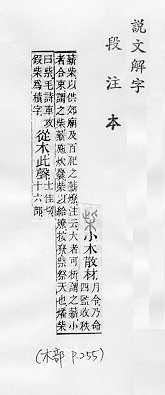 說文解字
段注本
柴 小木散材
月令乃命
四監收秩
薪柴以供郊廟及百祀之薪燎注云大者可析謂之薪小
者合束謂之柴薪施炊爨柴以給燎按尞祡祭天也燔柴
曰祡毛詩車攻
假柴爲積字
從木此聲
士佳切
十六部
(木部 P.255)